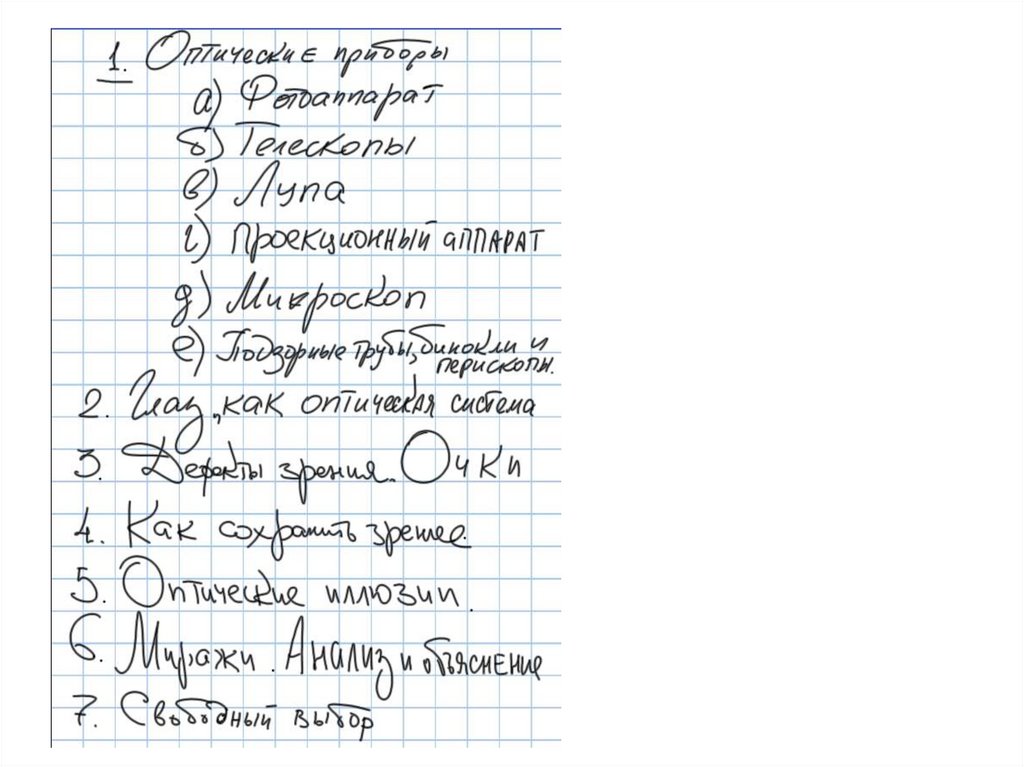 1. Оптические приборы
а) Фотоаппарат
б) Телескопы
в) Лупа
г) Проекционный аппарат
д) Микроскоп
е) Подзорные трубы, бинокли и
перископы.
2. Глаз, как оптическая система
3. Дефекты зрения. Очки
4. Как сохранить зрение.
5. Оптические иллюзии.
6. Миражи. Анализ и объяснение
7. Свободный выбор